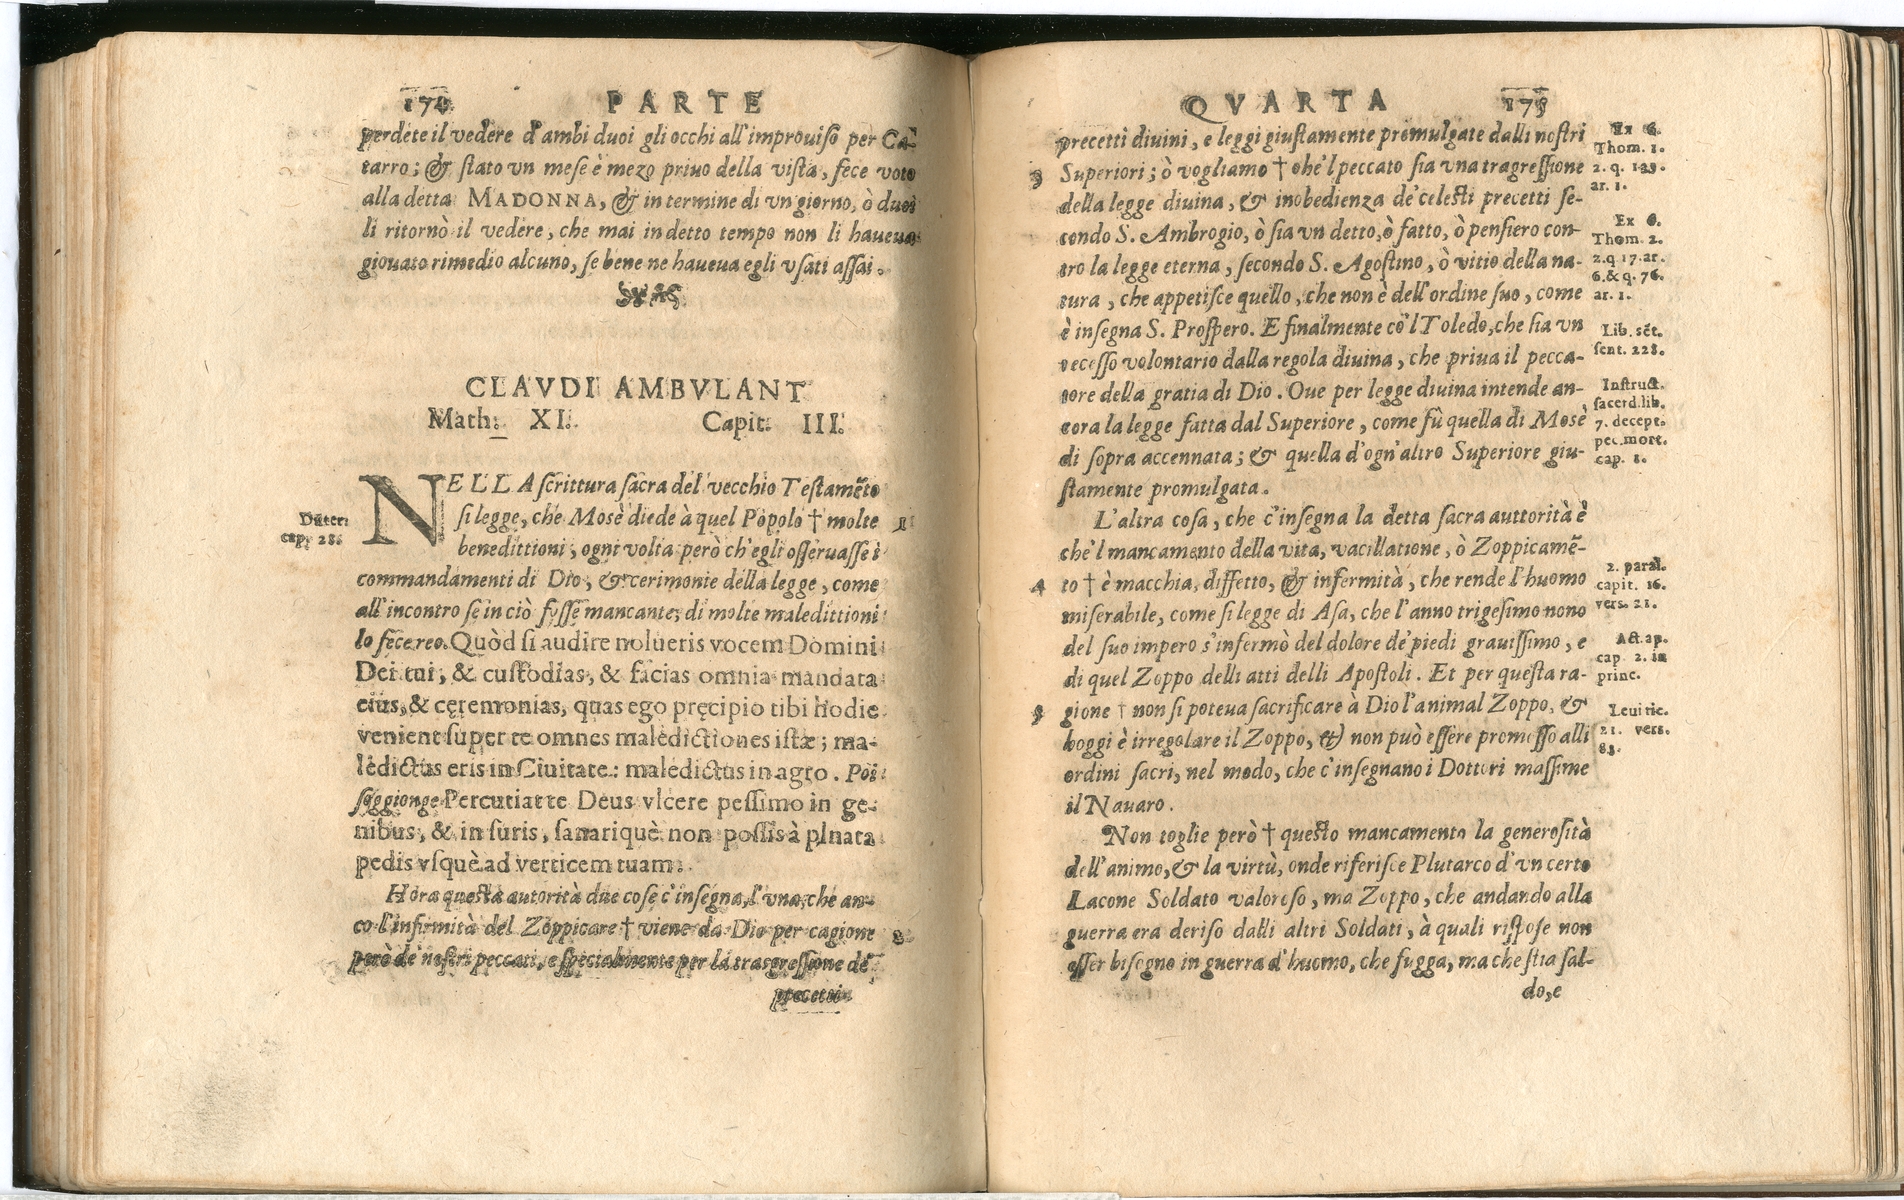 170 PARTE
perdete il vedere d'ambi duoi gli occhi all'improuiso per Ca-
tarro; & stato vn mese è mezo priuo della vista, fece voto
alla detta MADONNA, & in termine di vn giorno, ò duoi
li ritornò il vedere, che mai in detto tempo non li haueua
giouato rimedio alcuno, se bene ne haueua egli vsati assai.
CLAVDI AMBVLANT
Math: XI. Capit: III.
NELLA scrittura sacra del vecchio Testamẽto
si legge, che Mosè diede à quel Popolo † molte 1
benedittioni, ogni volta però ch'egli osseruasse i
commandamenti di Dio, & cerimonie della legge, come
all'incontro se in ciò fusse mancante, di molte maledittioni
lo fece reo. Quòd si audire nolueris vocem Domini
Dei tui, & custodias, & facias omnia mandata
eius, & cęremonias, quas ego pręcipio tibi hodie
venient super te omnes maledictiones istæ; ma-
ledictus eris in Ciuitate: maledictus in agro. Poi
soggionge Percutiat te Deus vlcere pessimo in ge-
nibus, & in suris, sanariquè non possis à plnata
pedis vsquè ad verticem tuam.
Hora questa autorità due cose c'insegna, l'vna, che an-
co l'infirmità del Zoppicare † viene da Dio per cagione
però de nostri peccati, e specialmente per la trasgressione de
precetti
Duter.
cap. 28.
QVARTA
precetti diuini, e leggi giustamente promulgate dalli nostri
3 Superiori; ò vogliamo † che'l peccato sia vna tragressione
della legge diuina, & inobedienza de' celesti precetti se-
condo S. Ambrogio, ò sia vn detto, ò fatto, ò pensiero con-
tro la legge eterna, secondo S. Agostino, ò vitio della na-
tura, che appetisce quello, che non è dell'ordine suo, come
è insegna S. Prospero. E finalmente cõ'l Toledo, che sia vn
recesso volontario dalla regola diuina, che priua il pecca-
tore della gratia di Dio. Oue per legge diuina intende an-
cora la legge fatta dal Superiore, come fù quella di Mosè
di sopra accennata; & quella d'ogn'altro Superiore giu-
stamente promulgata.
L'altra cosa, che c'insegna la detta sacra auttorità è
che'l mancamento della vita, vacillatione, ò Zoppicamẽ-
4 to † è macchia, diffetto, & infermità, che rende l'huomo
miserabile, come si legge di Asa, che l'anno trigesimo nono
del suo impero s'infermò del dolore de' piedi grauissimo, e
di quel Zoppo delli atti delli Apostoli. Et per questa ra-
5 gione † non si poteua sacrificare à Dio l'animal Zoppo, &
hoggi è irregolare il Zoppo, & non può essere promosso alli
ordini sacri, nel modo, che c'insegnano i Dottori massime
il Nauaro.
Non toglie però † questo mancamento la generosità
dell'animo, & la virtù, onde riferisce Plutarco d'vn certo
Lacone Soldato valoroso, ma Zoppo, che andando alla
guerra era deriso dalli altri Soldati, à quali rispose non
esser bisogno in guerra d'huomo, che fugga, ma che stia sal-
do, e
Thom. 1.
ar. 1.
Thom. 2.
2. q 17. ar.
6. & q. 76.
ar. 1.
Lib. sẽt.
sent. 228.
Instruct.
sacerd. lib.
7. decept.
pec. mort.
cap. 8.
2. paral.
capit. 16.
vers. 21.
Act. ap.
cap. 2. in
princ.
Leuitic.
21. vers.